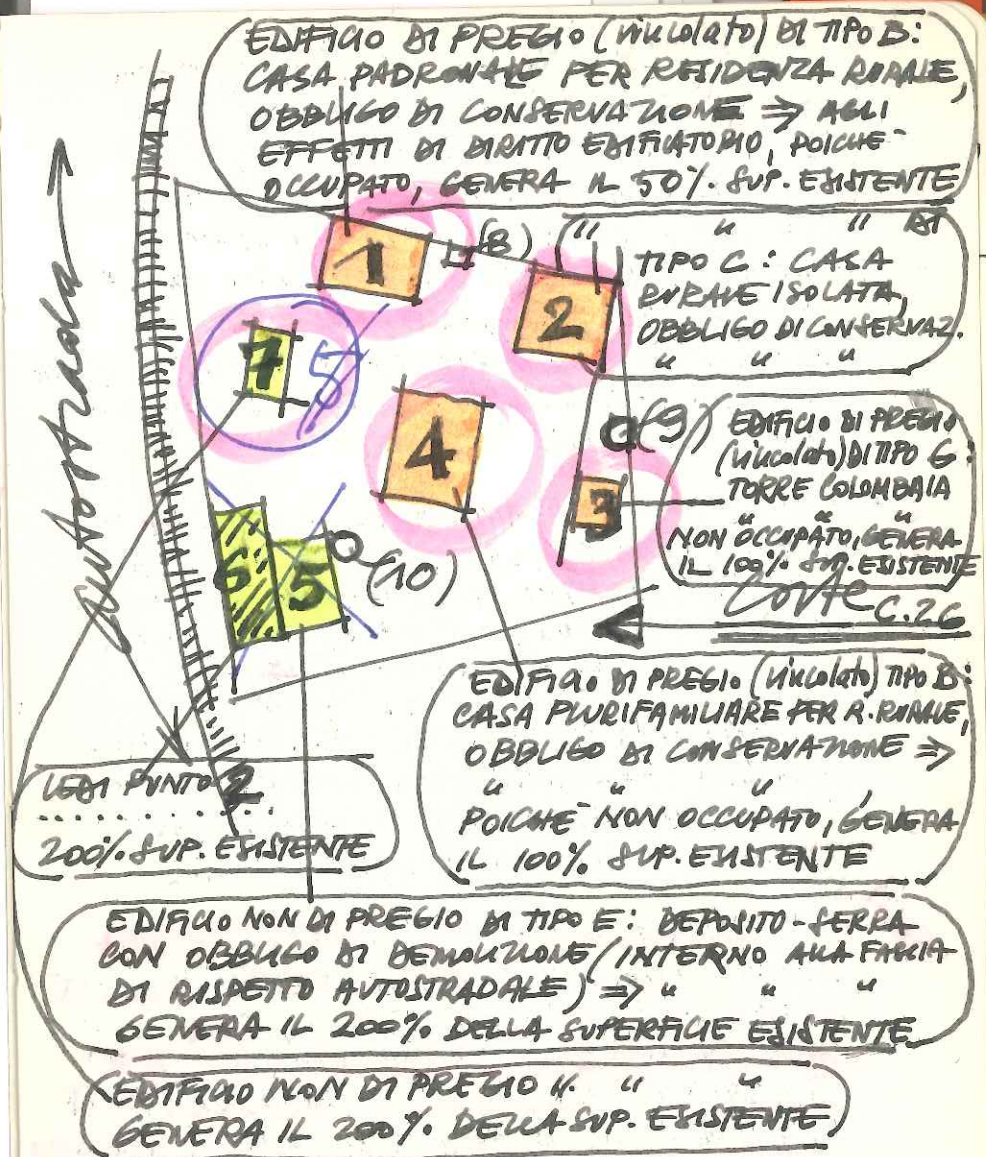 EDIFICIO DI PREGIO (vincolato) DI TIPO B:
CASA PADRONALE PER RESIDENZA RURALE,
OBBLIGO DI CONSERVAZIONE ⇒ AGLI
EFFETTI DI DIRITTO EDIFICATORIO, POICHE'
OCCUPATO, GENERA IL 50%. SUP. ESISTENTE
Autostrada →
1
(8)
2
(" " " DI
TIPO C: CASA
RURALE ISOLATA,
OBBLIGO DI CONSERVAZ.
" " "
7
5
4
(9)
3
EDIFICIO DI PREGIO
(vincolato) DI TIPO G:
TORRE COLOMBAIA
" " "
NON OCCUPATO, GENERA
IL 100% SUP. ESISTENTE
6
5
(10)
Corte C.26
EDIFICIO DI PREGIO (vincolato) TIPO B:
CASA PLURIFAMILIARE PER R. RURALE,
OBBLIGO DI CONSERVAZIONE ⇒
" " " ,
POICHE' NON OCCUPATO, GENERA
IL 100% SUP. ESISTENTE
VEDI PUNTO 2
..........
200%. SUP. ESISTENTE
EDIFICIO NON DI PREGIO DI TIPO E: DEPOSITO-SERRA
CON OBBLIGO DI DEMOLIZIONE (INTERNO ALLA FASCIA
DI RISPETTO AUTOSTRADALE) ⇒ " " "
GENERA IL 200% DELLA SUPERFICIE ESISTENTE
EDIFICIO NON DI PREGIO " " "
GENERA IL 200%. DELLA SUP. ESISTENTE